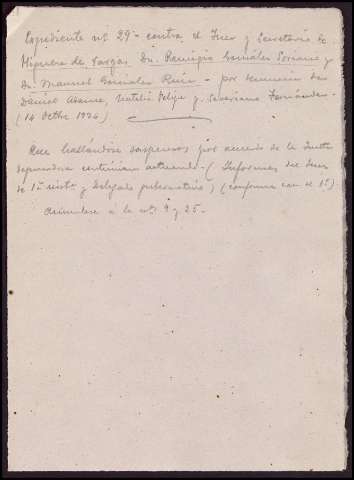 Expediente nº 29 - contra el Juez y Secretario de
Higuera de Vargas Dn. Remigio González Soriano y
Dn. Manuel González Ruiz - por denuncia de
Daniel Natalio Felipe y Severiano Fernández -
(14 Octbre 1936)
Que hallandose suspensos por acuerdo de la Junta
depuradora continúan actuando - (Informes del Juez
de 1ª instª y Delegado gubernativo) (conforme con el 1º)
a la nº 9 y 25 -